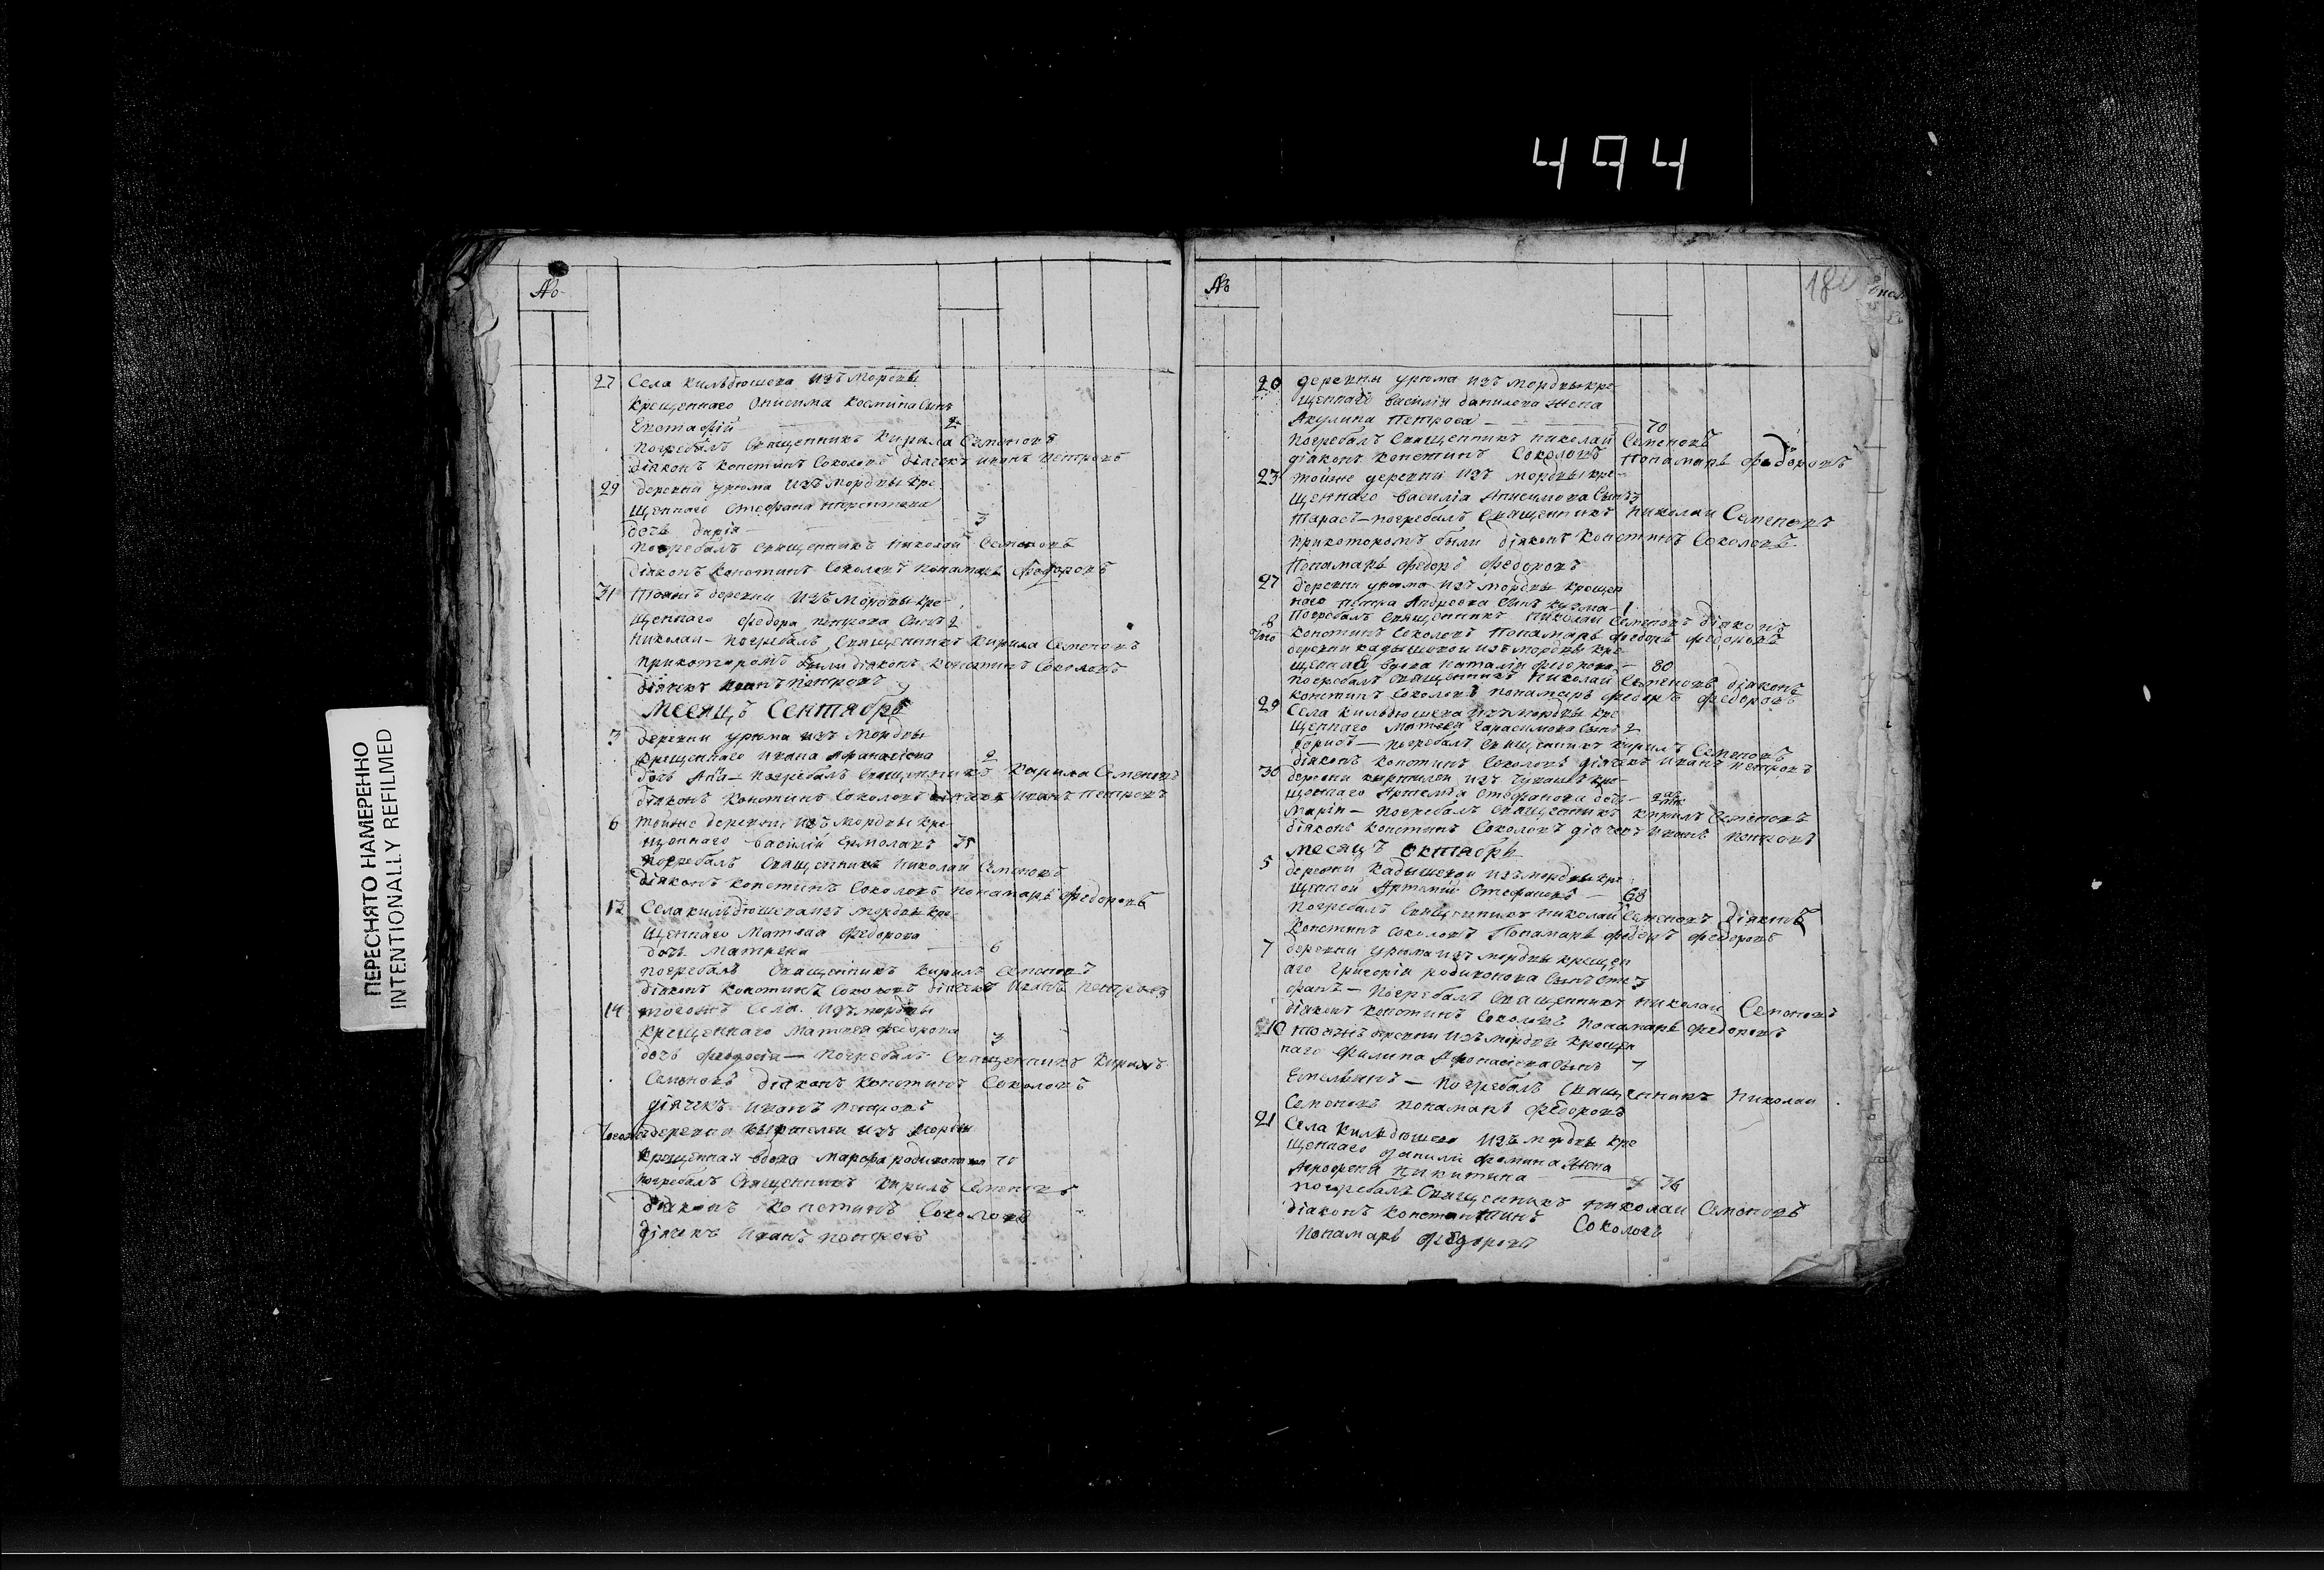 494
ПЕРЕСНЯТО НАМЕРЕННО
INTENTIONALLY REFILMED
№
27 Села кильдюшева изъ мордвы
крещеннаго Онисима Космина сынъ
Евстафій 2
погребалъ священникъ Кирила Семеновъ
діаконъ Констинъ Соколовъ діячекъ Иванъ Петровъ
29 деревни урюма изъ мордвы кре
щеннаго Стефана
дочь дарія 3
погребалъ священникъ Николай Семеновъ
діаконъ Констинъ Соколовъ понамарь Федоровъ
31 тояжъ деревни изъ мордвы кре
щеннаго Федора петрова сынъ 2
Николай – погребалъ священникъ Кирила Семеновъ
прикоторомъ были діаконъ Констинъ Соколовъ
діячекъ Иванъ Петровъ
месяцъ Сентябрь
3 деревни урюма изъ мордвы
крещеннаго Ивана Афанасіева 2
дочь Анна – погребалъ священникъ Кирила Семеновъ
діаконъ Констинъ Соколовъ діячекъ Иванъ Петровъ
6 тойже деревни изъ мордвы кре
щеннаго Василій Ермолаевъ 35
погребалъ священникъ Николай Семеновъ
діаконъ Констинъ Соколовъ понамарь Федоровъ
12 Села кильдюшева изъ мордвы кре
щеннаго Матвея Федорова
дочь Матрена 6
погребалъ священникъ Кирилъ Семеновъ
діаконъ Констинъ Соколовъ діячекъ Иванъ Петровъ
14 тогожъ села изъ мордвы
крещеннаго Матвея Федорова 3
дочь Феодосія – погребалъ священникъ Кирилъ
Семеновъ діаконъ Констинъ Соколовъ
діячекъ Иванъ Петровъ
деревни изъ мордвы
крещенная вдова Марфа родионова 70
погребалъ священникъ Кирилъ Семеновъ
діаконъ Констинъ Соколовъ
діячекъ Иванъ Петровъ
№
20 деревни урюма изъ мордвы кре
щеннаго Василія данилова жена
Акулина Петрова 70
погребалъ священникъ Николай Семеновъ
діаконъ Констинъ Соколовъ понамарь Федоровъ
23 тойже деревни изъ мордвы кре
щеннаго Василія Анисимова сынъ 3
тарасъ – погребалъ священникъ Николай Семеновъ
прикоторомъ были діаконъ Констинъ Соколовъ
понамарь Федоръ Федоровъ
27 деревни урюма изъ мордвы крещен
наго петра Андреева сынъ кузма 1
погребалъ священникъ Николай Семеновъ діаконъ
Констинъ Соколовъ понамарь Федоръ Федоровъ
деревни кадышевой изъ мордвы кре
щенная вдова наталія Федорова – 80
погребалъ священникъ Николай Семеновъ діаконъ
Констинъ Соколовъ понамарь Федоръ Федоровъ
29 Села кильдюшева изъ мордвы кре
щеннаго Матвея Гарасимова сынъ 2
борисъ – погребалъ священникъ Кирилъ Семеновъ
діаконъ Констинъ Соколовъ діячекъ Иванъ Петровъ
30 деревни изъ чувашъ кре
щеннаго Артемія Стефанова дочь –
Марія – погребалъ священникъ Кирилъ Семеновъ
діаконъ Констинъ Соколовъ діячекъ Иванъ Петровъ
месяцъ октябрь
5 деревни кадышевой изъ мордвы кре
щеной Артемій Стефановъ – 68
погребалъ священникъ Николай Семеновъ діаконъ
Констинъ Соколовъ понамарь Федоръ Федоровъ
7 деревни урюма изъ мордвы крещен
аго Григорія родионова сынъ Сте 3
фанъ – погребалъ священникъ Николай Семеновъ
діаконъ Констинъ Соколовъ понамарь Федоровъ
10 тояжъ деревни изъ мордвы крещен
наго Филипа Афонасіева сынъ 7
Емельянъ – погребалъ священникъ Николай
Семеновъ понамарь Федоровъ
21 Села кильдюшева изъ мордвы кре
щеннаго данилы Фомина жена
Агрофена никитина 76
погребалъ священникъ Николай Семеновъ
діаконъ Констинтинъ Соколовъ
понамарь Федоровъ